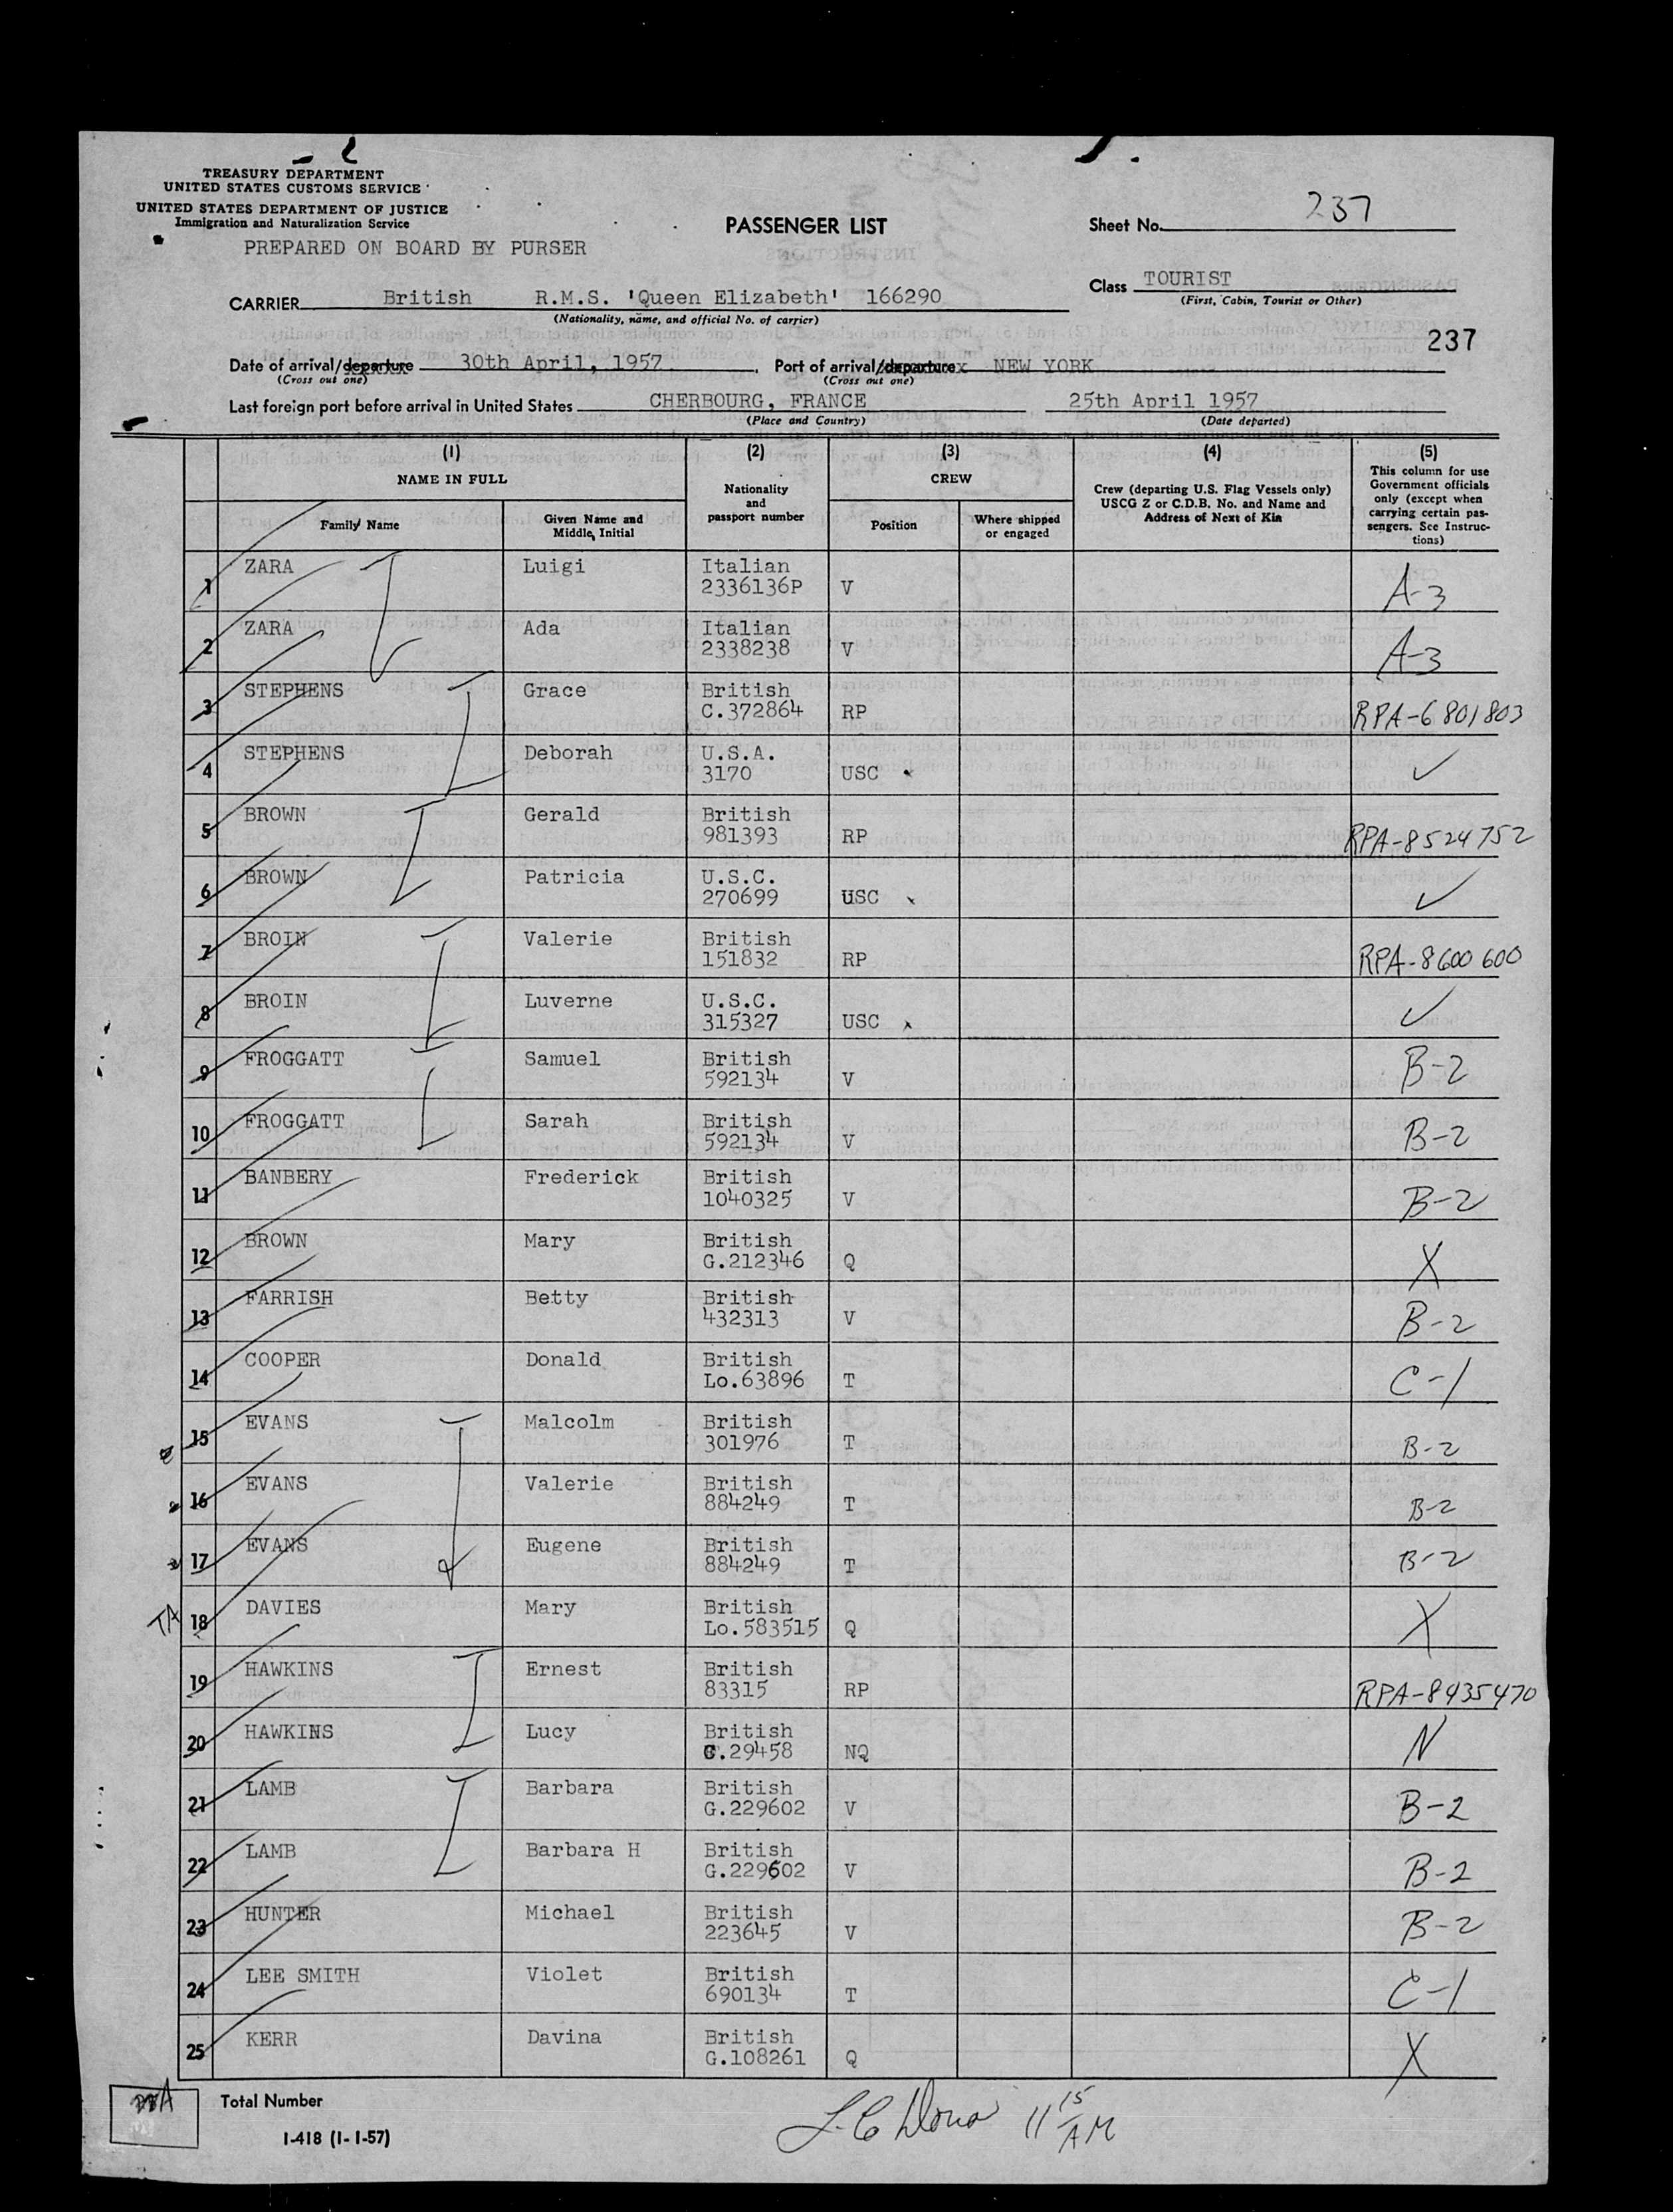 TREASURY DEPARTMENT
UNITED STATES CUSTOMS SERVICE
UNITED STATES DEPARTMENT OF JUSTICE
Immigration and Naturalization Service
PREPARED ON BOARD BY PURSER
PASSENGER LIST
Sheet No. 237
Class TOURIST
(First, Cabin, Tourist or Other)
CARRIER British R.M.S. 'Queen Elizabeth' 166290
(Nationality, name, and official No. of carrier)
237
Date of arrival/departure 30th April, 1957. Port of arrival/departure NEW YORK
(Cross out one) (Cross out one)
Last foreign port before arrival in United States CHERBOURG, FRANCE 25th April 1957
(Place and Country) (Date departed)
(1) (2) (3) (4) (5)
NAME IN FULL
Family Name
Given Name and Middle Initial
Nationality and passport number
CREW
Position
Where shipped or engaged
Crew (departing U.S. Flag Vessels only)
USCG Z or C.D.B. No. and Name and
Address of Next of Kin
This column for use
Government officials
only (except when
carrying certain pas-
sengers. See Instruc-
tions)
1 ZARA Luigi Italian 2336136P V A-3
2 ZARA Ada Italian 2338238 V A-3
3 STEPHENS Grace British C.372864 RP RPA-6801803
4 STEPHENS Deborah U.S.A. 3170 USC ✓
5 BROWN Gerald British 981393 RP RPA-8524752
6 BROWN Patricia U.S.C. 270699 USC ✓
7 BROIN Valerie British 151832 RP RPA-8600600
8 BROIN Luverne U.S.C. 315327 USC ✓
9 FROGGATT Samuel British 592134 V B-2
10 FROGGATT Sarah British 592134 V B-2
11 BANBERY Frederick British 1040325 V B-2
12 BROWN Mary British G.212346 Q X
13 FARRISH Betty British 432313 V B-2
14 COOPER Donald British Lo.63896 T C-1
15 EVANS Malcolm British 301976 T B-2
16 EVANS Valerie British 884249 T B-2
17 EVANS Eugene British 884249 T B-2
TA 18 DAVIES Mary British Lo.583515 Q X
19 HAWKINS Ernest British 83315 RP RPA-8435470
20 HAWKINS Lucy British C.29458 NQ N
21 LAMB Barbara British G.229602 V B-2
22 LAMB Barbara H British G.229602 V B-2
23 HUNTER Michael British 223645 V B-2
24 LEE SMITH Violet British 690134 T C-1
25 KERR Davina British G.108261 Q X
Total Number
11 15 AM
I-418 (1-1-57)